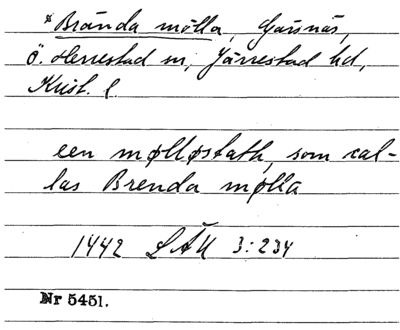 *Brända mölla, Gärsnäs,
Ö. Herrestad sn, Järrestad hd,
Krist. l.
een mølløstath, som cal-
las Brenda mølla
1442 LÄU 3:234
Nr 5451.